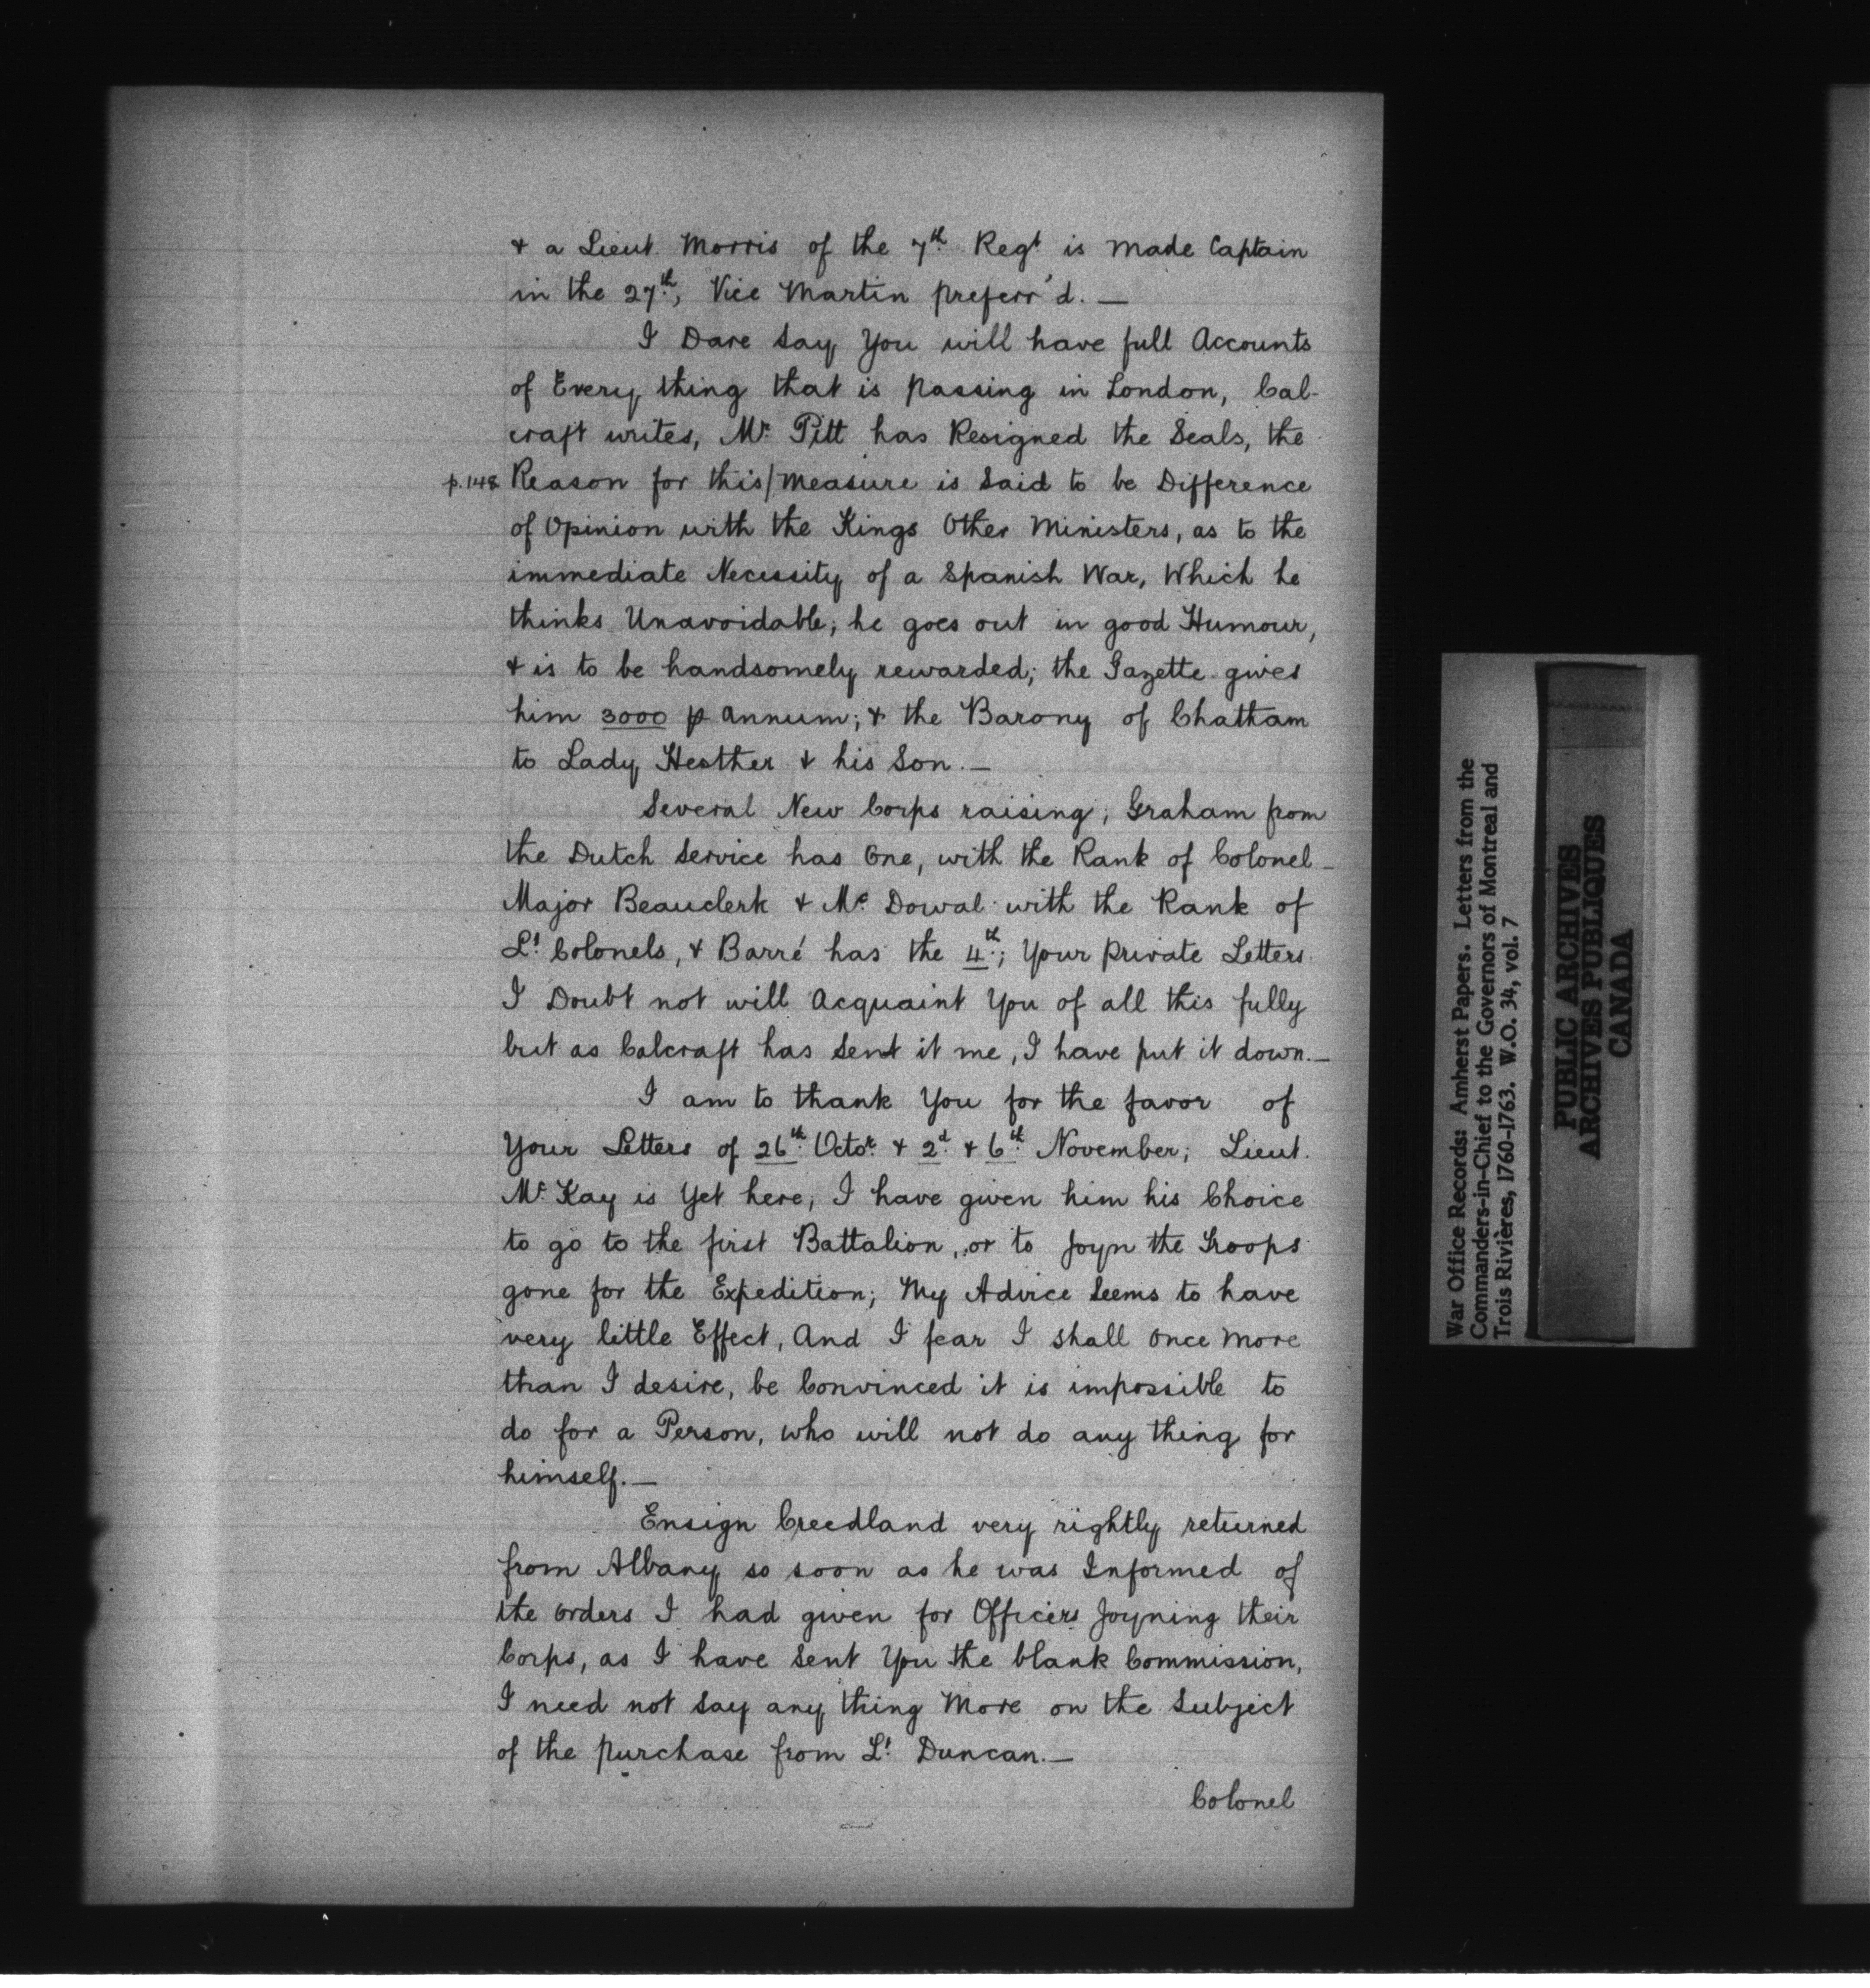 & a Lieut. Morris of the 7th Regt is Made Captain
in the 27th, Vice Martin preferr'd. —
I Dare Say You will have full Accounts
of Every thing that is passing in London, Cal-
craft writes, Mr Pitt has Resigned the Seals, the
p.148 Reason for this/Measure is Said to be Difference
of Opinion with the Kings Other Ministers, as to the
immediate Necessity of a Spanish War, Which he
thinks Unavoidable; he goes out in good Humour,
& is to be handsomely rewarded; the Gazette gives
him 3000 p Annum; & the Barony of Chatham
to Lady Hesther & his Son. —
Several New Corps raising; Graham from
the Dutch Service has One, with the Rank of Colonel —
Major Beauclerk & Mc Dowal with the Rank of
Lt Colonels, & Barré has the 4th; Your private Letters
I Doubt not will Acquaint You of all this fully
but as Calcraft has Sent it me, I have put it down. —
I am to thank You for the favor of
Your Letters of 26th Octor & 2d & 6th November; Lieut.
Mc Kay is Yet here; I have given him his Choice
to go to the first Battalion, or to Joyn the Troops
gone for the Expedition; My Advice Seems to have
very little Effect, And I fear I shall Once More
than I desire, be Convinced it is impossible to
do for a Person, who will not do any thing for
himself. —
Ensign Creedland very rightly returned
from Albany so soon as he was Informed of
the Orders I had given for Officers Joyning their
Corps, as I have Sent You the blank Commission,
I need not Say any thing More on the Subject
of the purchase from Lt Duncan. —
Colonel
War Office Records: Amherst Papers. Letters from the
Commanders-in-Chief to the Governors of Montreal and
Trois Rivières, 1760-1763. W.O. 34, vol. 7
PUBLIC ARCHIVES
ARCHIVES PUBLIQUES
CANADA